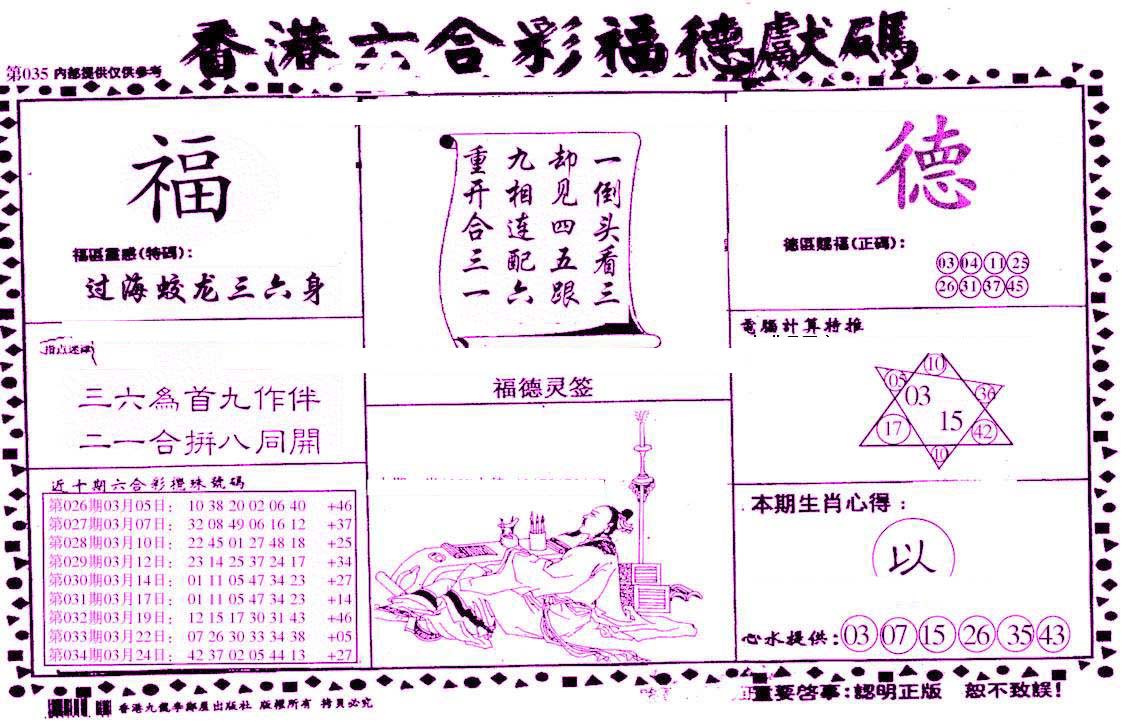 香港六合彩福德獻碼
第035 内部提供仅供参考
福
福區靈感(特碼):
过海蛟龙三六身
三六為首九作伴
二一合拼八同開
近十期六合彩攪珠號碼
第026期03月05日: 10 38 20 02 06 40 +46
第027期03月07日: 32 08 49 06 16 12 +37
第028期03月10日: 22 45 01 27 48 18 +25
第029期03月12日: 23 14 25 37 24 17 +34
第030期03月14日: 01 11 05 47 34 23 +27
第031期03月17日: 01 11 05 47 34 23 +14
第032期03月19日: 12 15 17 30 31 43 +46
第033期03月22日: 07 26 30 33 34 38 +05
第034期03月24日: 42 37 02 05 44 13 +27
一倒头看三
却见四五跟
九相连配六
重开合三一
福德灵签
德
德區賜福(正碼):
03 04 11 25
26 31 37 45
電腦計算特推
10
05 03 36
17 15 42
10
本期生肖心得:
以
心水提供: 03 07 15 26 35 43
重要啓事:認明正版 恕不致誤!
版權所有 拷貝必究